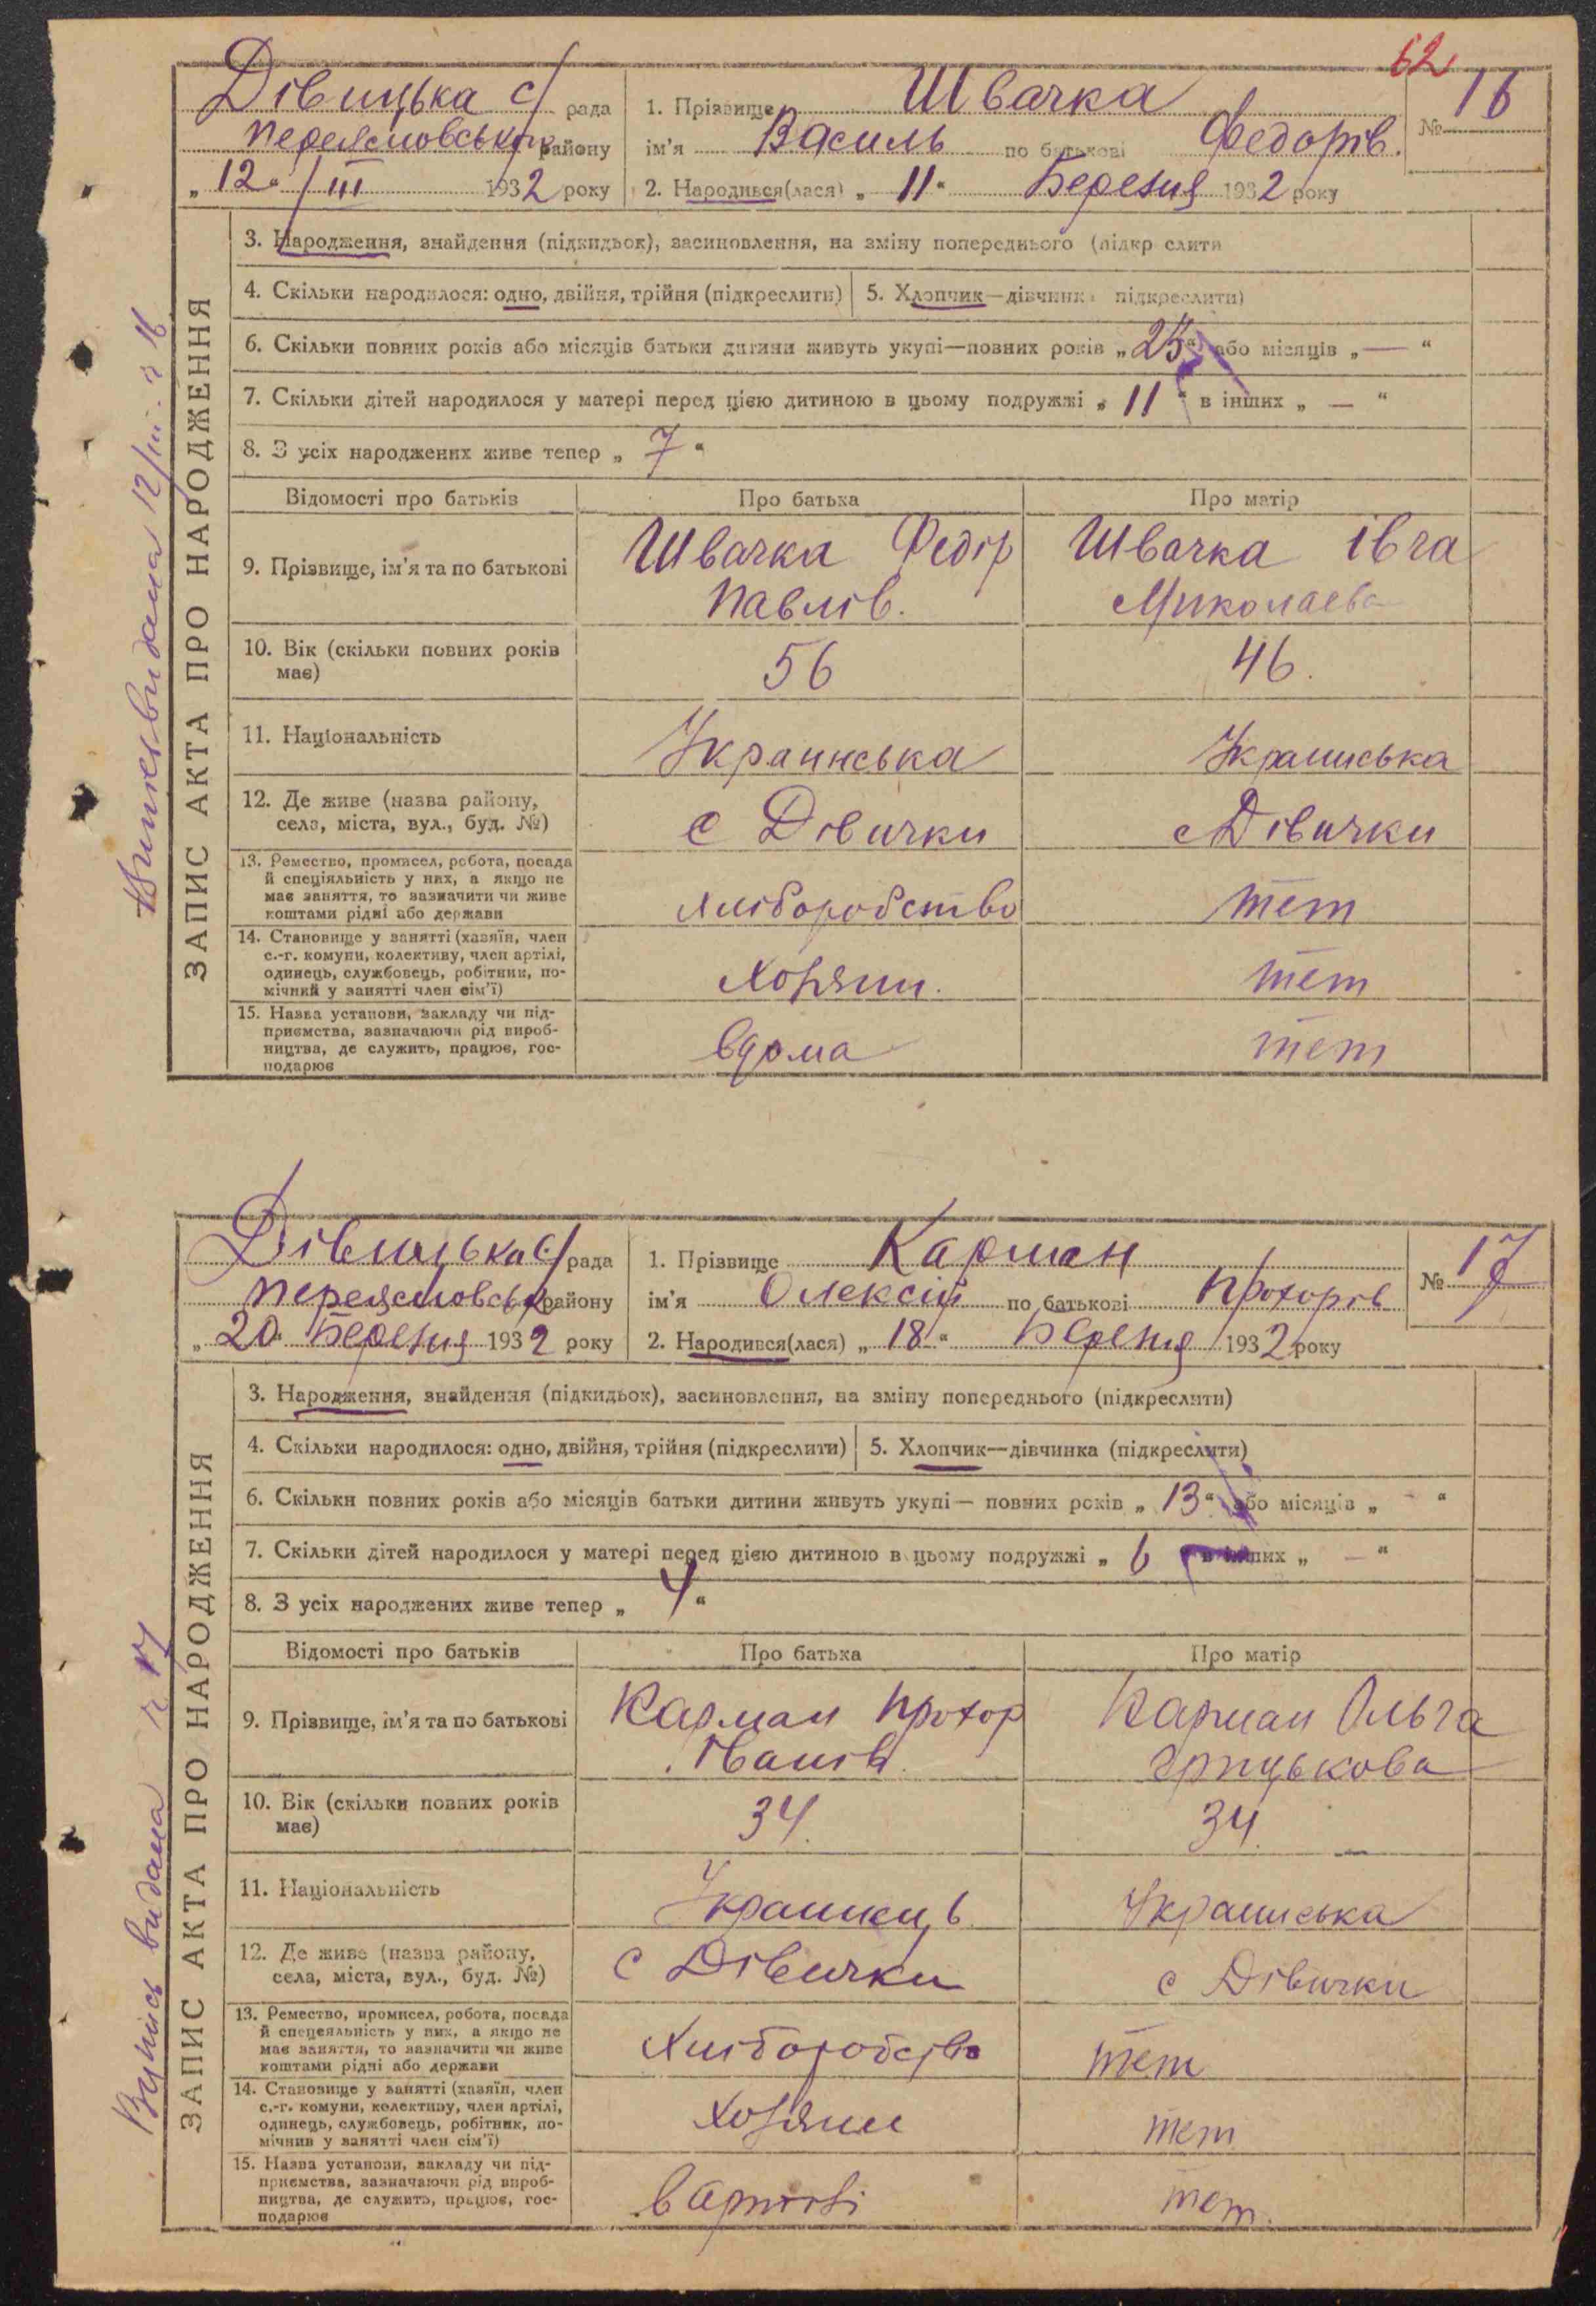 62
Дівицька с/рада
Переяславського району
„12“ /III 1932 року
1. Прізвище Швачка
ім'я Василь по батькові Федорів.
№ 16
2. Народився(лася) „11“ Березня 1932 року
ЗАПИС АКТА ПРО НАРОДЖЕННЯ
видана 12/III. 16
3. Народження, знайдення (підкидьок), засиновлення, на зміну попереднього (підкр слити
4. Скільки народилося: одно, двійня, трійня (підкреслити)
5. Хлопчик—дівчинк підкреслити)
6. Скільки повних років або місяців батьки дитини живуть укупі—повних років „25“ або місяців „—“
7. Скільки дітей народилося у матері перед цією дитиною в цьому подружжі „11“ в інших „—“
8. З усіх народжених живе тепер „7“
Відомості про батьків Про батька Про матір
9. Прізвище, ім'я та по батькові
Швачка Федір
Павлів.
Швачка Івга
Миколаева
10. Вік (скільки повних років
має)
56
46.
11. Національність
Украинська
Украинська
12. Де живе (назва району,
села, міста, вул., буд. №)
с Дівички
с Дівички
13. Ремество, промисел, робота, посада
й спеціяльність у них, а якщо не
має заняття, то зазначити чи живе
коштами рідні або держави
Хліборобство
тет
14. Становище у занятті (хазяїн, член
с.-г. комуни, колективу, член артілі,
одинець, службовець, робітник, по-
мічний у занятті член сім'ї)
Хозяин.
тет
15. Назва установи, закладу чи під-
приємства, зазначаючи рід вироб-
ництва, де служить, працює, гос-
подарює
вдома
тет
Дівицька с/рада
Переясловськ району
„20“ Березня 1932 року
1. Прізвище Карман
ім'я Олексій по батькові Прохорів
№ 17
2. Народився(лася) „18“ Березня 1932 року
ЗАПИС АКТА ПРО НАРОДЖЕННЯ
Випись видана 17
3. Народження, знайдення (підкидьок), засиновлення, на зміну попереднього (підкреслити)
4. Скільки народилося: одно, двійня, трійня (підкреслити)
5. Хлопчик—дівчинка (підкреслити)
6. Скільки повних років або місяців батьки дитини живуть укупі— повних років „13“ або місяців „-“
7. Скільки дітей народилося у матері перед цією дитиною в цьому подружжі „6“ в інших „—“
8. З усіх народжених живе тепер „4“
Відомості про батьків Про батька Про матір
9. Прізвище, ім'я та по батькові
Карман Прохор
Іванів.
Карман Ольга
Грицькова
10. Вік (скільки повних років
має)
34.
34.
11. Національність
Украинець
Украинська
12. Де живе (назва району,
села, міста, вул., буд. №)
с Дівички
с Дівички
13. Ремество, промисел, робота, посада
й спецеяльність у них, а якщо не
має заняття, то зазначити чи живе
коштами рідні або держави
Хліборобство
тет
14. Становище у занятті (хазяїн, член
с.-г. комуни, колективу, член артілі,
одинець, службовець, робітник, по-
мічнив у занятті член сім'ї)
Хозяин
тет
15. Назва установи, закладу чи під-
приємства, зазначаючи рід вироб-
ництва, де служить, працює, гос-
подарює
в Артілі
тет.